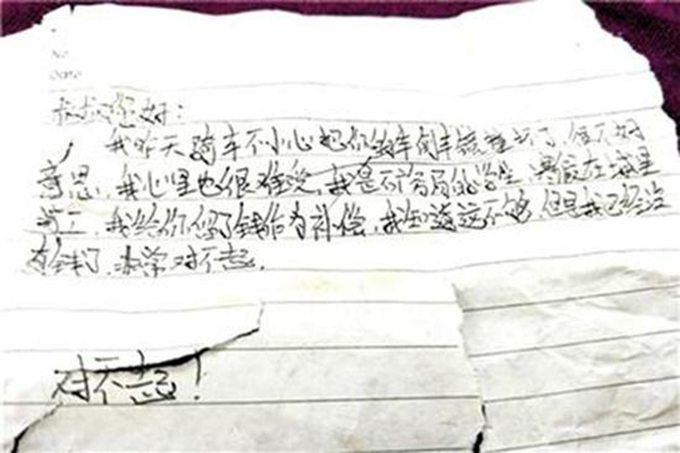 No
Date
叔叔您好：
我昨天骑车不小心把你的车倒车镜撞坏了，很不好
意思，我心里也很难受，我是不高的学生，寒假在这里
，我给你留了钱作为补偿，我知道这不够，但是我已经没
有钱了，叔叔对不起，
对不起！